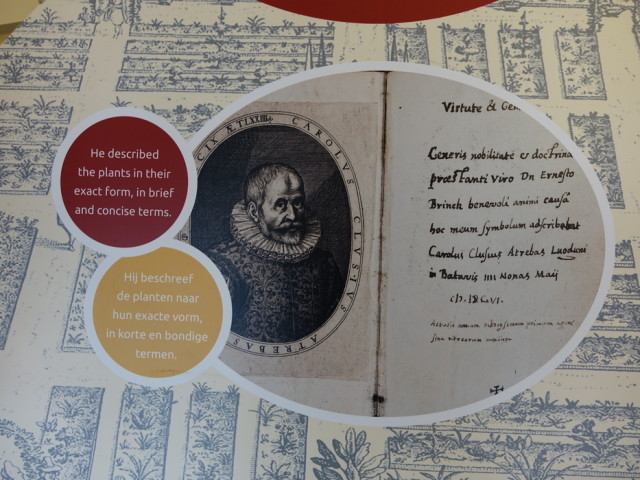 He described
the plants in their
exact form, in brief
and concise terms.
Hij beschreef
de planten naar
hun exacte vorm,
in korte en bondige
termen.
CAROLVS CLVSIVS
ATREBAS
Virtute &
Generis nobilitate & doctrina
præstanti Viro Dn Ernesto
Brinck benevoli amini causâ
hoc meum symbolum adscribebat
Carolus Clusius Atrebas Lugduni
in Batavis IIII Nonas Maij